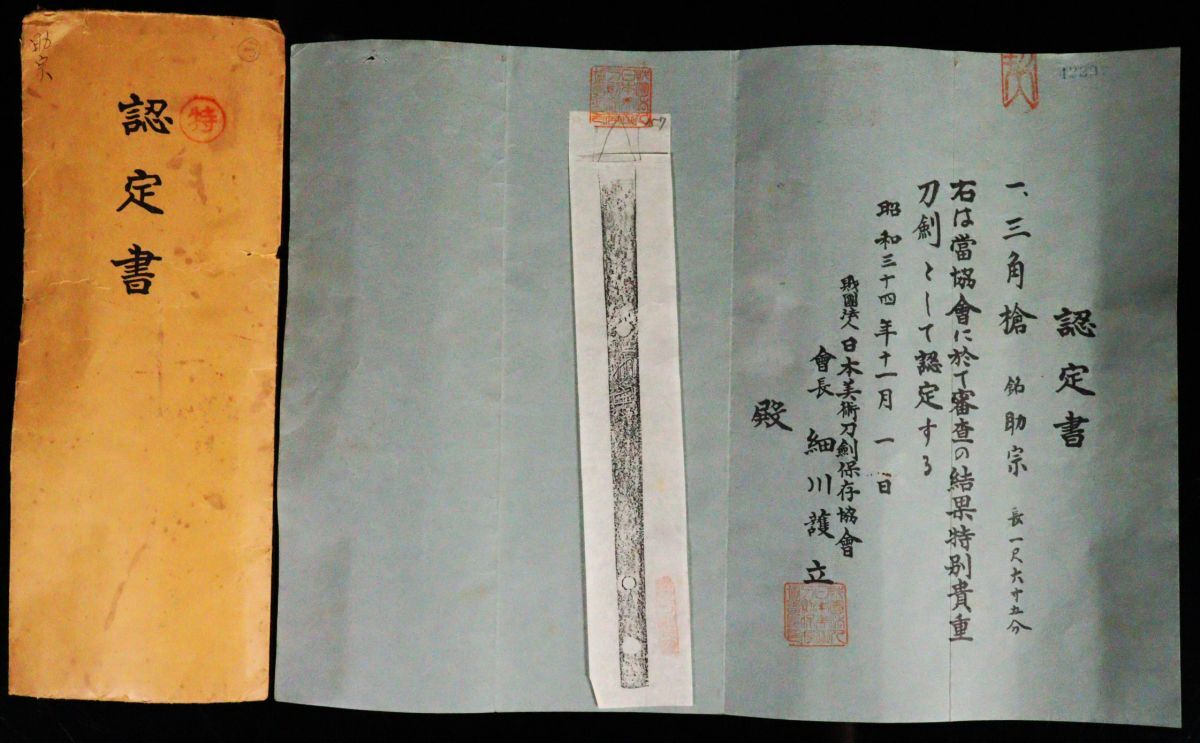 助宗
特
認定書
認定書
一、三角槍 銘助宗 長一尺六寸五分
右は當協會に於て審査の結果特別貴重
刀劍として認定する
昭和三十四年十一月一日
財團法人日本美術刀劍保存協會
會長 細川護立
殿